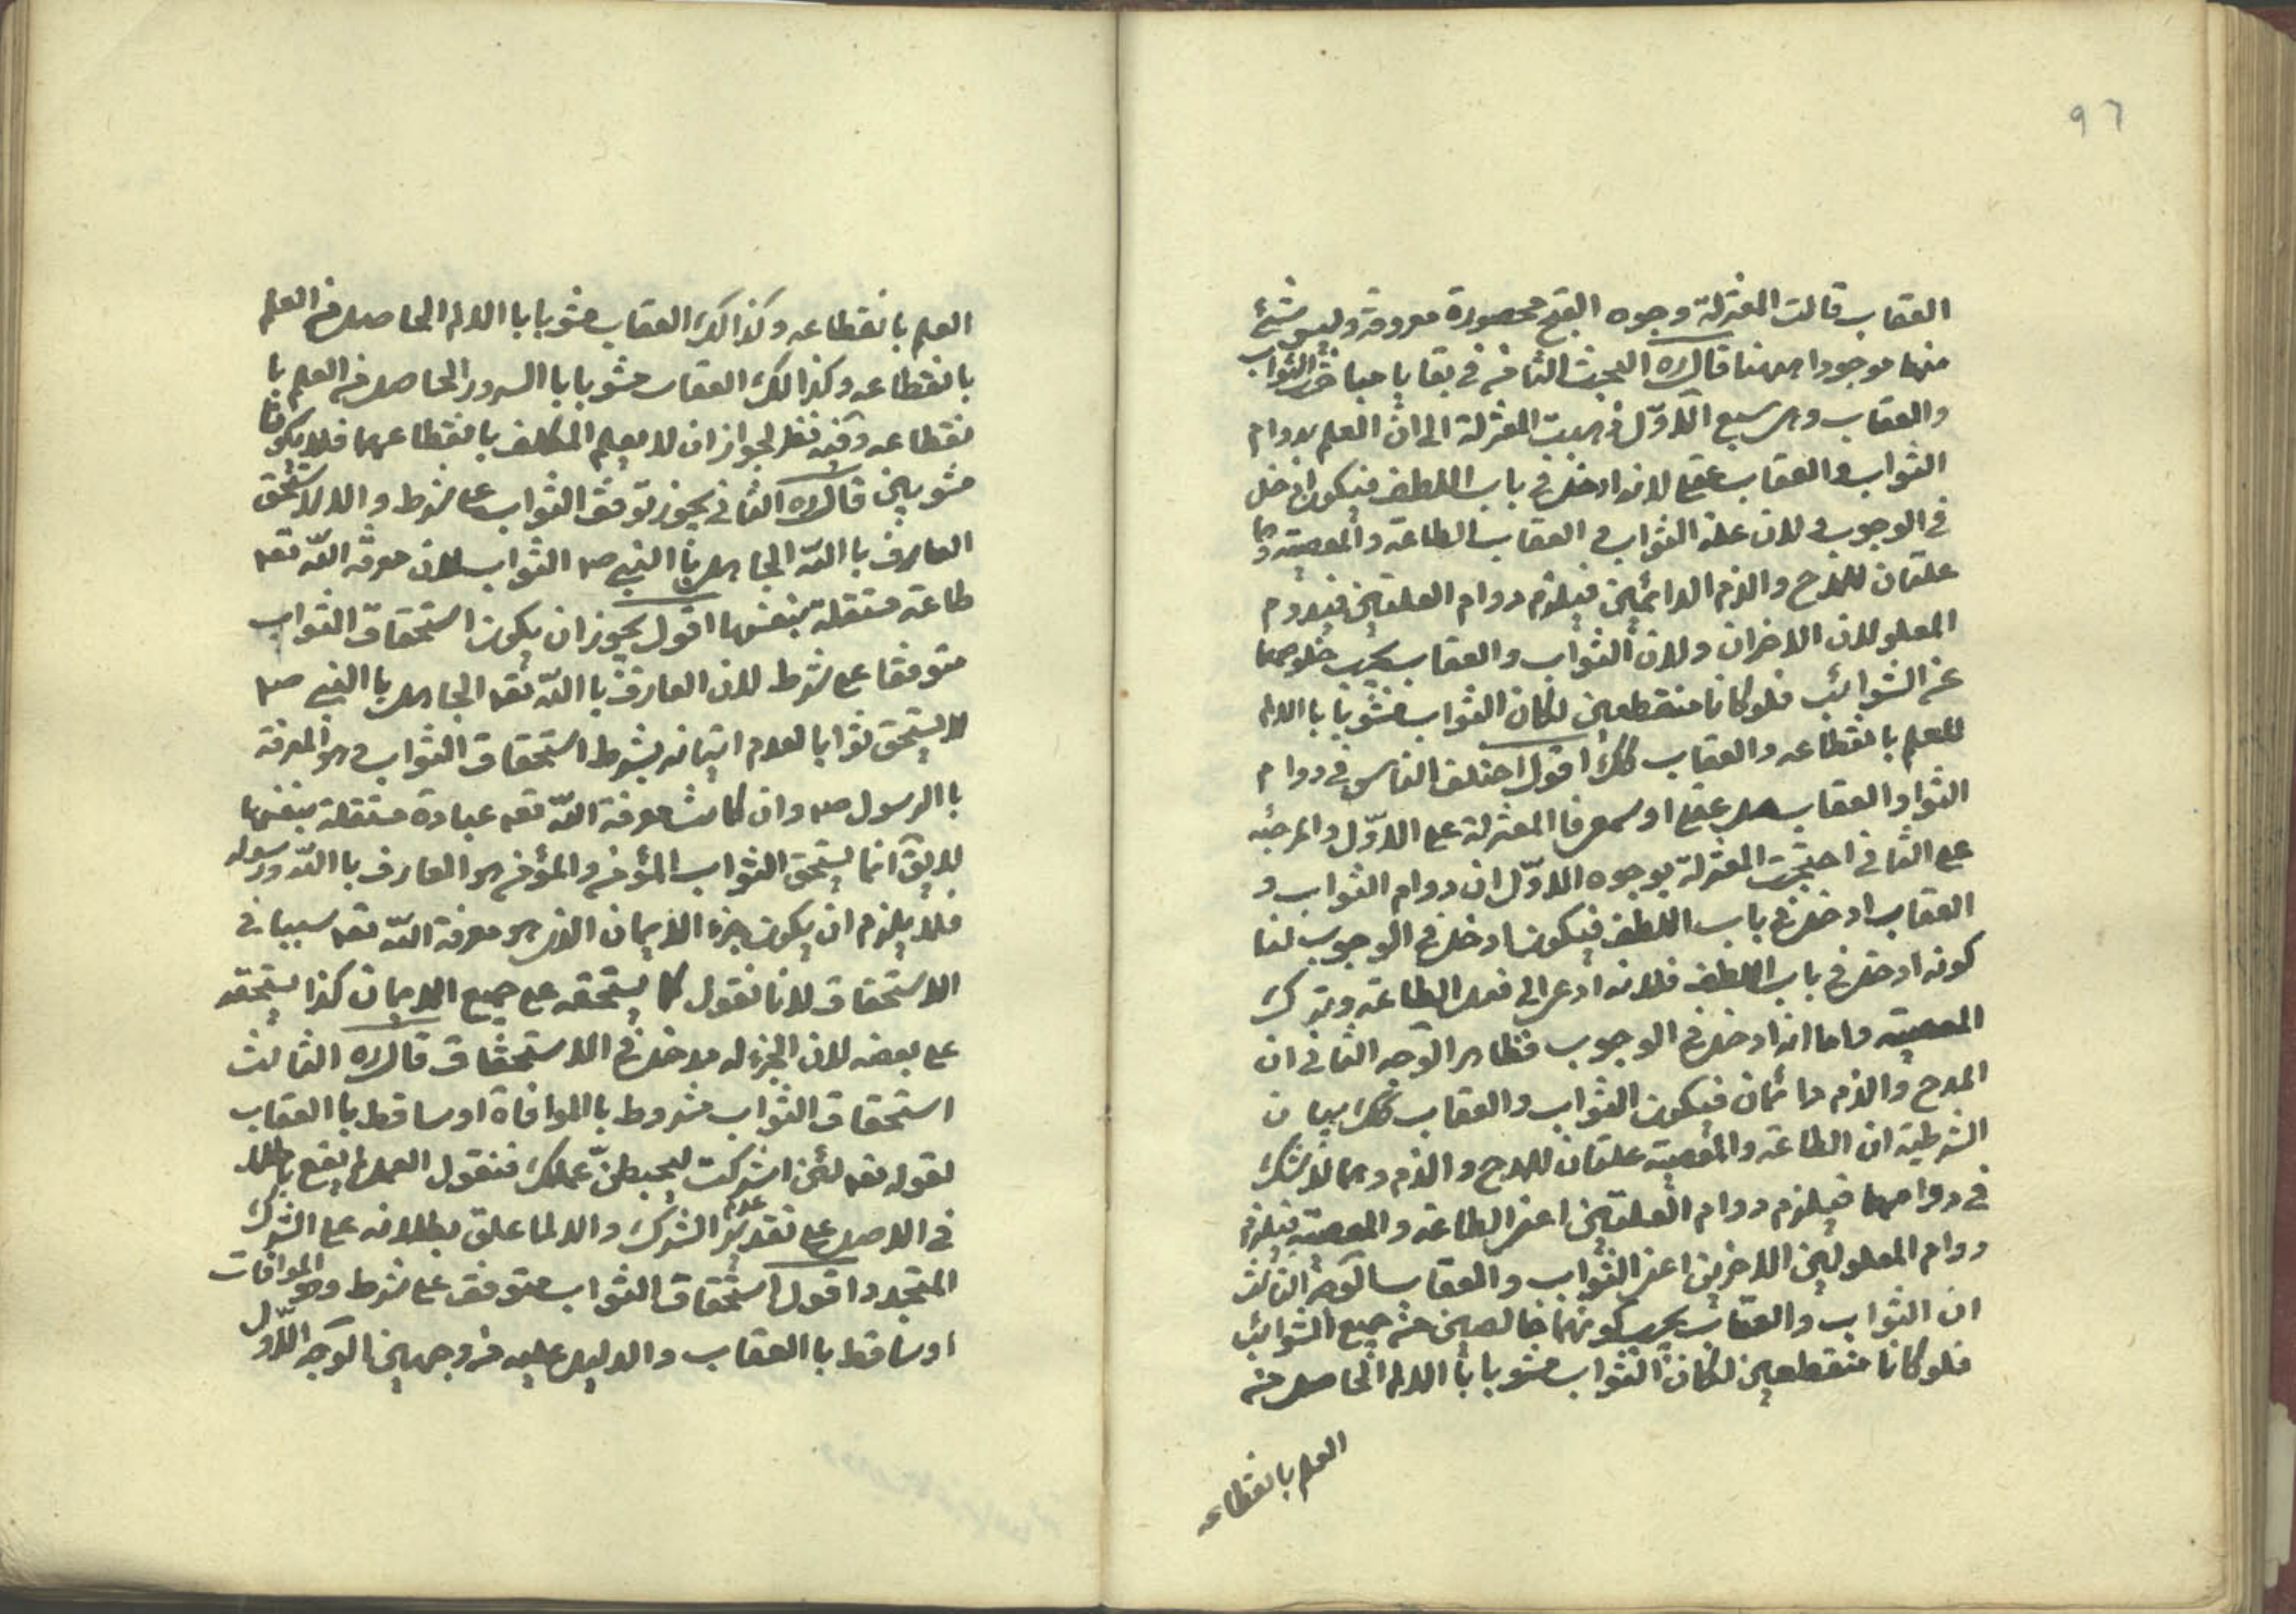 ٩٦
العقاب قالت المعتزلة وجوه القبح محصورة معروفة وليس شئ
منها موجودا ههنا قال ره البحث الثاني في بقايا مباحث الثواب
والعقاب وهي سبع الاوّل ذهبت المعتزلة الى ان العلم بدوام
الثواب والعقاب عقلي لانه ادخل في باب اللطف فيكون ادخل
في الوجوب ولان علة الثواب و العقاب الطاعة والمعصية وهما
علتان للمدح والذم الدائمين فيلزم دوام العلتين فيدوم
المعلولان الاخران ولان الثواب والعقاب يجب خلوصهما
عن الشوائب فلو كانا منقطعين لكان الثواب مشوبا باالالم
للعلم بانقطاعه والعقاب كك اقول اختلف الناس في دوام
الثواب والعقاب هل عقلي او سمعي فالمعتزلة على الاوّل والمرجئه
على الثاني احتجت المعتزلة بوجوه الاوّل ان دوام الثواب و
العقاب ادخل في باب اللطف فيكون ادخل في الوجوب لنا
كونه ادخل في باب اللطف فلانه ادعى الى فعل الطاعة وترك
المعصية واما انه ادخل في الوجوب فظاهر الوجه الثاني ان
المدح والذم دائمان فيكون الثواب والعقاب كك بيان
الشرطية ان الطاعة والمعصية علتان للمدح والذم وهما لا شك
في دوامهما فيلزم دوام العلتين اعني الطاعة والمعصية فيلزم
دوام المعلولين الاخرين اعني الثواب والعقاب الوجه الثالث
ان الثواب والعقاب يجب كونهما خالصين من جميع الشوائب
فلو كانا منقطعين لكان الثواب مشوبا باالالم الحاصل من
العلم بانقطاعه
العلم بانقطاعه وكذالك العقاب مشوبا باالالم الحاصل من العلم
بانقطاعه وكذالك العقاب مشوبا باالسرور الحاصل من العلم با
نقطاعه وفيه نظر لجواز ان لا يعلم المكلف بانقطاعهما فلا يكونا
مشوبين قال ره الثاني يجوز توقف الثواب على شرط والا لاستحق
العارف باالله الجاهل باالنبي ص الثواب لان معرفة الله تعه
طاعة مستقلة بنفسها اقول يجوز ان يكون استحقاق الثواب
متوقفا على شرط لان العارف باالله تعه الجاهل باالنبي ص
لا يستحق ثوابا لعدم اتيانه بشرط استحقاق الثواب وهو المعرفة
باالرسول ص وان كانت معرفة الله تعه عبادة مستقلة بنفسها
لا يق انما يستحق الثواب المؤمن والمؤمن هو العارف باالله ورسوله
فلا يلزم ان يكون جزء الايمان الذي هو معرفة الله تعه سببا في
الاستحقاق لانا نقول كما يستحقه على جميع الايمان كذا يستحقه
على بعضه لان الجزء له مدخل في الاستحقاق قال ره الثالث
استحقاق الثواب مشروط باالموافاة او ساقط باالعقاب
لقوله تعه لئن اشركت ليحبطنّ عملك فنقول العمل لم يقع باطلا
في الاصل على تقدير عدم الشرك والا لما علق بطلانه على الشرك
المتجدد اقول استحقاق الثواب متوقف على شرط وهو الموافات
او ساقط باالعقاب والدليل عليه من وجهين الوجه الاوّل